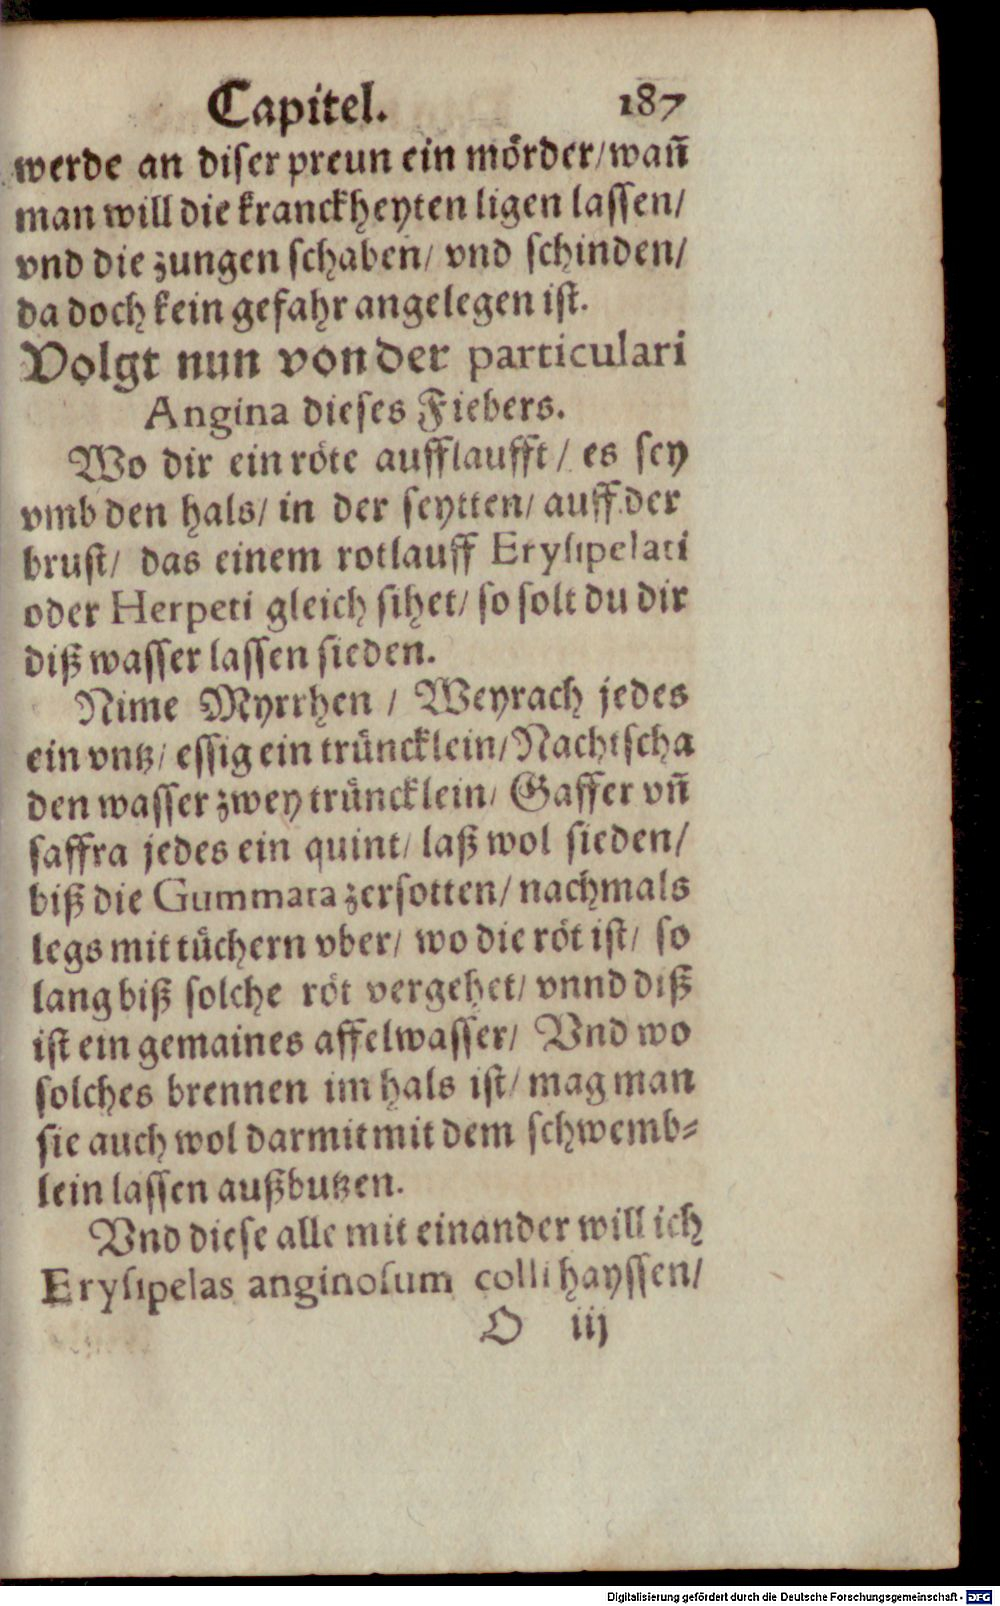 Capitel. 187
werde an diser preun ein mörder/ wañ
man will die kranckheyten ligen lassen/
vnd die zungen schaben/ vnd schinden/
da doch kein gefahr angelegen ist.
Volgt nun von der particulari
Angina dieses Fiebers.
Wo dir ein röte aufflaufft/ es sey
vmb den hals/ in der seytten/ auff der
brust/ das einem rotlauff Erysipelati
oder Herpeti gleich sihet/ so solt du dir
diß wasser lassen sieden.
Nime Myrrhen / Weyrach jedes
ein vntz/ essig ein trüncklein/ Nachtscha
den wasser zwey trüncklein/ Gaffer vñ
saffra jedes ein quint/ laß wol sieden/
biß die Gummata zersotten/ nachmals
legs mit tüchern vber/ wo die röt ist/ so
lang biß solche röt vergehet/ vnnd diß
ist ein gemaines affelwasser/ Vnd wo
solches brennen im hals ist/ mag man
sie auch wol darmit mit dem schwemb-
lein lassen außbutzen.
Vnd diese alle mit einander will ich
Erysipelas anginosum colli hayssen/
O iij
Digitalisierung gefördert durch die Deutsche Forschungsgemeinschaft - DFG